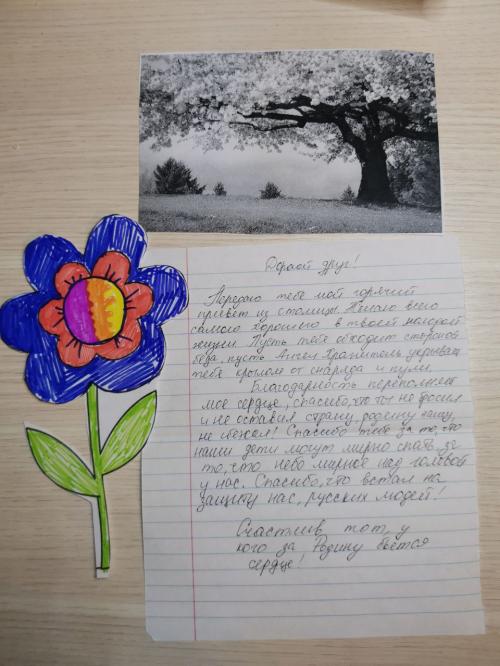 Дорогой друг!
Передаю тебе мой горячий
привет из столицы. Желаю всего
самого хорошего в твоей молодой
жизни. Пусть тебя обходит стороной
беда, пусть Ангел Хранитель укрывает
тебя крылом от снаряда и пули.
Благодарность переполняет
мое сердце, спасибо, что ты не бросил
и не оставил страну, родину нашу,
не бежал! Спасибо тебе за то, что
наши дети могут мирно спать, за
то, что небо мирное над головой
у нас. Спасибо, что встал на
защиту нас, русских людей!
Счастлив тот, у
кого за Родину бьется
сердце!